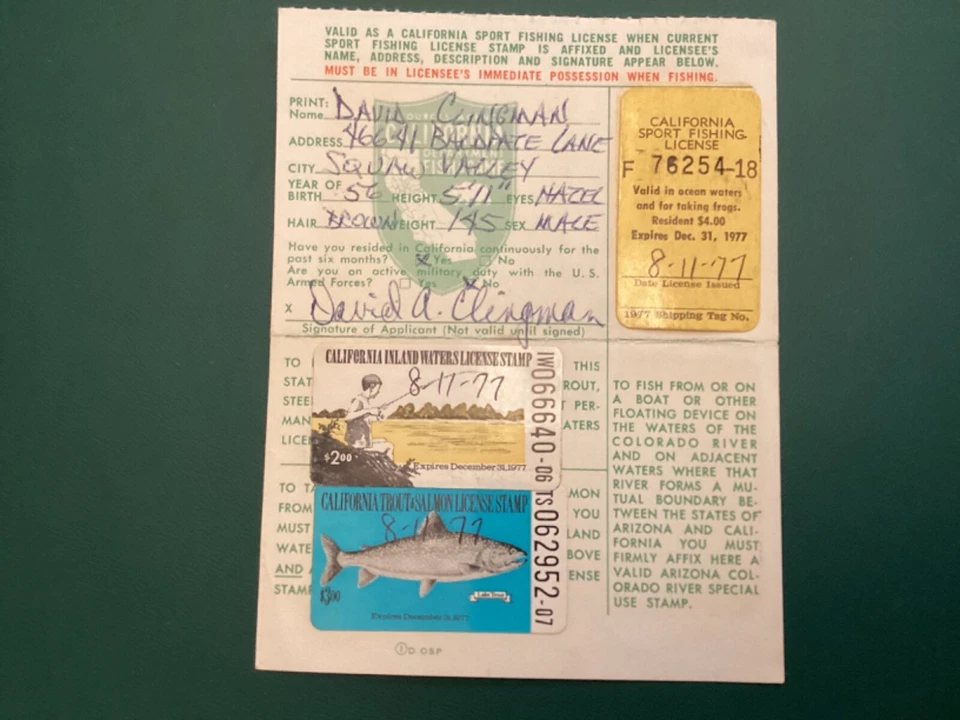 VALID AS A CALIFORNIA SPORT FISHING LICENSE WHEN CURRENT
SPORT FISHING LICENSE STAMP IS AFFIXED AND LICENSEE'S
NAME, ADDRESS, DESCRIPTION AND SIGNATURE APPEAR BELOW.
MUST BE IN LICENSEE'S IMMEDIATE POSSESSION WHEN FISHING.
PRINT:
Name DAVID CLINGMAN
ADDRESS 46641 BALDPATE LANE
CITY SQUAW VALLEY
YEAR OF
BIRTH 56 HEIGHT 5'11" EYES HAZEL
HAIR BROWN WEIGHT 145 SEX MALE
Have you resided in California continuously for the
past six months? X Yes No
Are you on active military duty with the U.S.
Armed Forces? Yes X No
X David A. Clingman
Signature of Applicant (Not valid until signed)
CALIFORNIA
SPORT FISHING
LICENSE
F 76254-18
Valid in ocean waters
and for taking frogs.
Resident $4.00
Expires Dec. 31, 1977
8-11-77
Date License Issued
1977 Shipping Tag No.
TO THIS
STAT ROUT,
STEE T PER-
MAN ATERS
LICEN
CALIFORNIA INLAND WATERS LICENSE STAMP
8-11-77
$2.00
Expires December 31, 1977
IW066640-06
TO TA MON
FROM YOU
MUST LAND
WATE BOVE
AND A ENSE
STAMP
CALIFORNIA TROUT & SALMON LICENSE STAMP
8-11-77
$3.00
Lake Trout
Expires December 31, 1977
TS062952-07
TO FISH FROM OR ON
A BOAT OR OTHER
FLOATING DEVICE ON
THE WATERS OF THE
COLORADO RIVER
AND ON ADJACENT
WATERS WHERE THAT
RIVER FORMS A MU-
TUAL BOUNDARY BE-
TWEEN THE STATES OF
ARIZONA AND CALI-
FORNIA YOU MUST
FIRMLY AFFIX HERE A
VALID ARIZONA COL-
ORADO RIVER SPECIAL
USE STAMP.
OSP